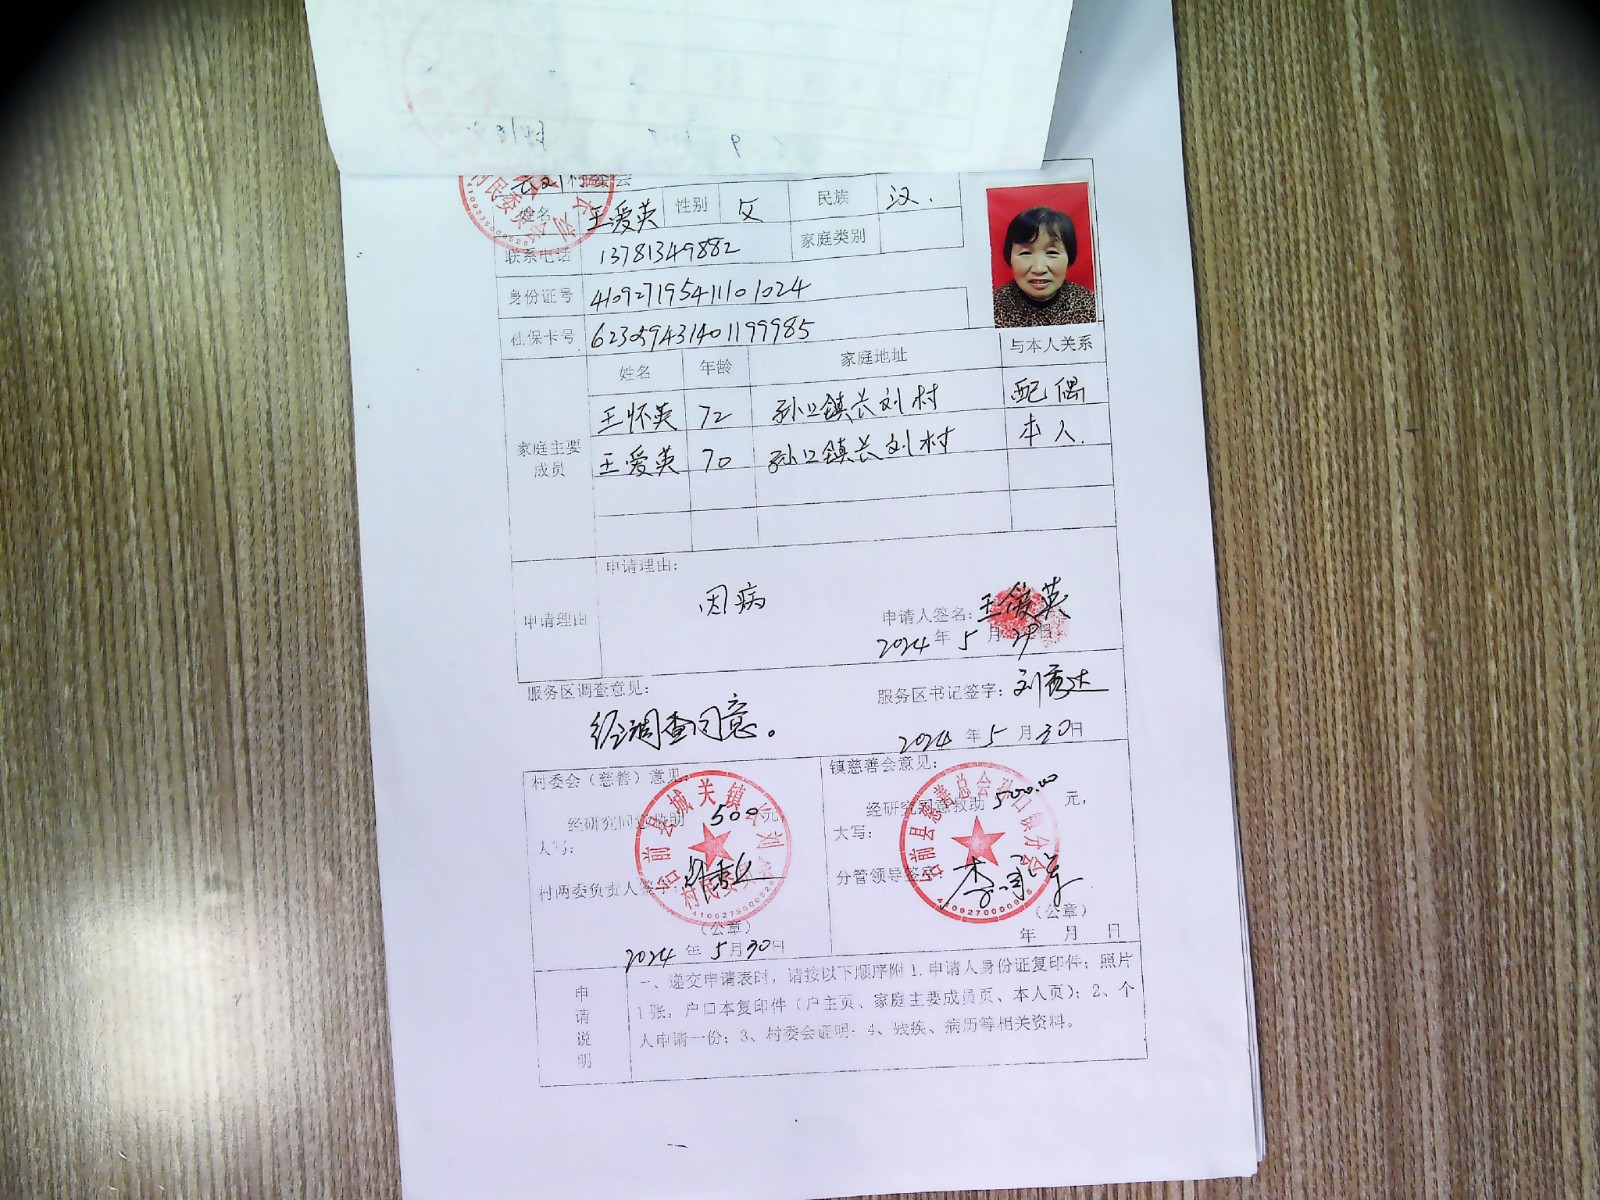 长刘村委会
姓名 王爱英 性别 女 民族 汉.
联系电话 13781349882 家庭类别
身份证号 410927195411101024
社保卡号 623059431401199985
姓名 年龄 家庭地址 与本人关系
家庭主要成员
王怀英 72 孙口镇长刘村 配偶
王爱英 70 孙口镇长刘村 本人.
申请理由
申请理由:
因病
申请人签名: 王爱英
2024年5月29日
服务区调查意见:
经调查同意。
服务区书记签字:
2024年5月30日
村委会(慈善)意见:
经研究同意救助 500元
大写:
村两委负责人签字:
(公章)
2024年5月30日
台前县城关镇长刘
村民委员会
镇慈善会意见:
经研究同意救助 500.00 元,
大写:
分管领导签字:
(公章)
年 月 日
台前县慈善总会孙口镇分会
申请说明
一、递交申请表时,请按以下顺序附1.申请人身份证复印件;照片
1张,户口本复印件(户主页、家庭主要成员页、本人页);2、个
人申请一份;3、村委会证明;4、残疾、病历等相关资料。